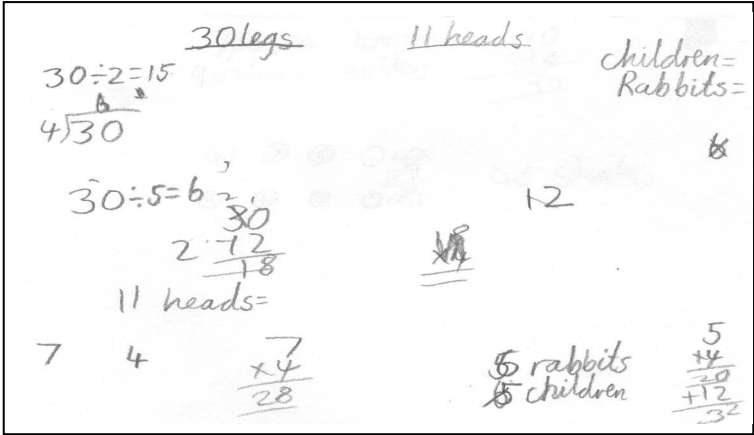 30 legs 11 heads
children=
Rabbits=
30÷2=15
6
4)30
30÷5=6
12
30
2 -12
18
11 heads=
7 4
7
×4
28
5 rabbits
6 children
5
×4
20
+12
32